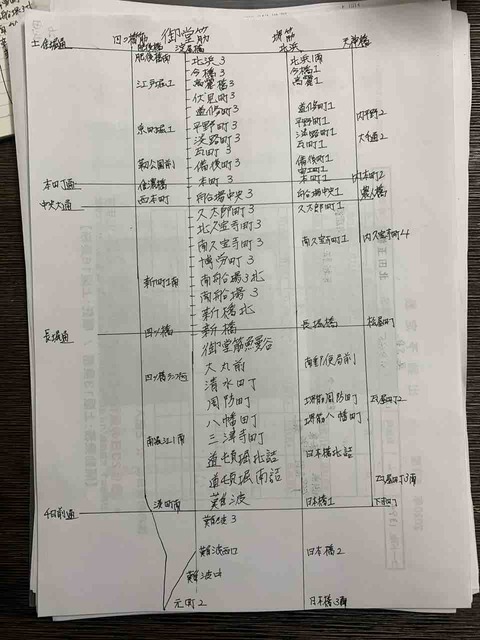 四ツ橋筋 御堂筋 堺筋 天神橋
土佐堀通 肥後橋 淀屋橋 北浜
肥後橋南 北浜3 北浜1南
今橋3 今橋1
江戸堀1 高麗橋3 高麗1
伏見町3
道修町3 道修町1 内平野2
京町堀1 平野町3 平野町1
淡路町3 淡路町1 大手通2
瓦町3 瓦町1
靭公園前 備後町3 備後町1
安土町1
本町通 信濃橋 本町3 本町1 内本町2
中央大通 西本町 船場中央3 船場中央1 農人橋
久太郎町3 久太郎町1
北久宝寺町3
南久宝寺町3 南久宝寺町1 内久宝寺町4
博労町3
新町1南 南船場3北
南船場3
新橋北
長堀通 四ツ橋 新橋 長堀橋 松屋町
御堂筋鰻谷
大丸前 南郵便局前
清水町
周防町 堺筋周防町 瓦屋町2
八幡町 堺筋八幡町
南堀江1南 三津寺町
道頓堀北詰 日本橋北詰
道頓堀南詰 瓦屋町3南
湊町南 難波 日本橋1 下寺町
千日前通
難波3
難波西口 日本橋2
難波中
元町2 日本橋3南